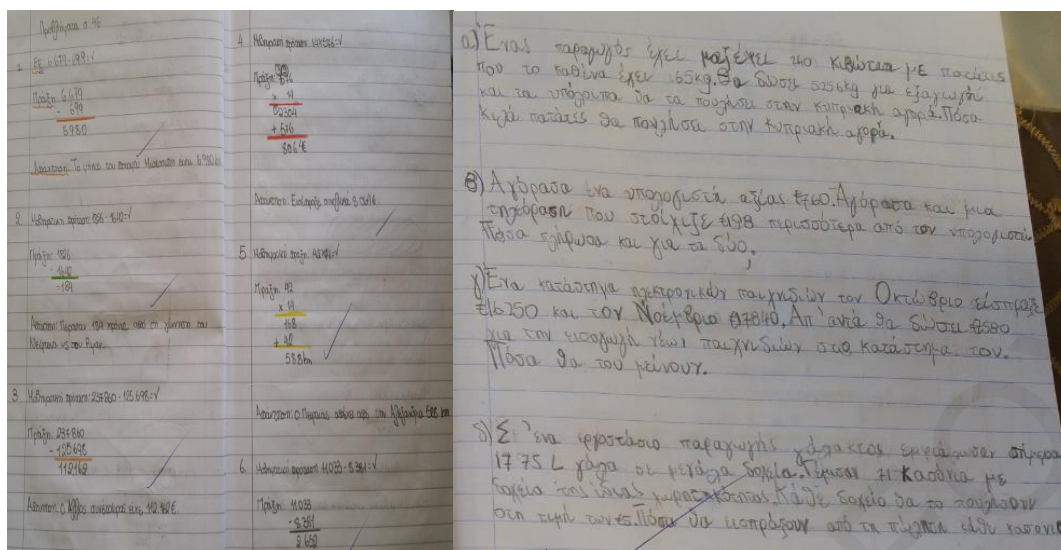 Προβλήματα σ. 46
6.679 - 699 = ν
Πράξη: 6.679
- 699
5980
Απάντηση: Το μήκος του ποταμού είναι 5.980
2. Μαθηματική πρόταση:
Πράξη: 1826
- 1642
= 184
Απάντηση: Πέρασαν 184 χρόνια από τη γέννηση του
3. Μαθηματική πρόταση: 237860 - 125698 = ν
Πράξη: 237860
- 125698
112162
Απάντηση: Ο
4. Μαθηματική πρόταση: 14×576 = ν
Πράξη: 576
× 14
02304
+ 576
8064€
Απάντηση: συνολικά 8.064€
5. Μαθηματική πράξη:
Πράξη: 42
× 14
168
+ 42
588km
Απάντηση: Ο Πειραιάς απέχει από την Αλεξάνδρεια 588 km
6. Μαθηματική πρόταση: 11.033 - 8.381 = ν
Πράξη: 11.033
- 8.381
2.652
α) Ένας παραγωγός έχει μαζέψει 240 κιβώτια με πατάτες
που το καθένα έχει 65kg. Θα δώσει 5256kg για εξαγωγή
και τα υπόλοιπα θα τα πουλήσει στην κυπριακή αγορά. Πόσα
κιλά πατάτες θα πουλήσει στην κυπριακή αγορά.
β) Αγόρασα ένα υπολογιστή αξίας €760. Αγόρασα και μια
τηλεόραση που στοίχιζε €198 περισσότερα από τον υπολογιστή
Πόσα πλήρωσα και για τα δύο;
γ) Ένα κατάστημα ηλεκτρονικών παιχνιδιών τον Οκτώβριο είσπραξε
€16250 και τον Νοέμβριο €17840. Απ' αυτά θα δώσει €580
για την εισαγωγή νέων παιχνιδιών στο κατάστημα του.
Πόσα θα του μείνουν.
δ) Σ' ένα εργοστάσιο παραγωγής γάλακτος εμφιάλωσαν σήμερα
1775 L γάλα σε μεγάλα δοχεία. Γέμισαν 71 κασόνια με
δοχεία της ίδιας χωρητικότητας. Κάθε δοχείο θα το πουλήσουν
στη τιμή των €5. Πόσα θα εισπράξουν από τη πώληση κάθε κασονιού